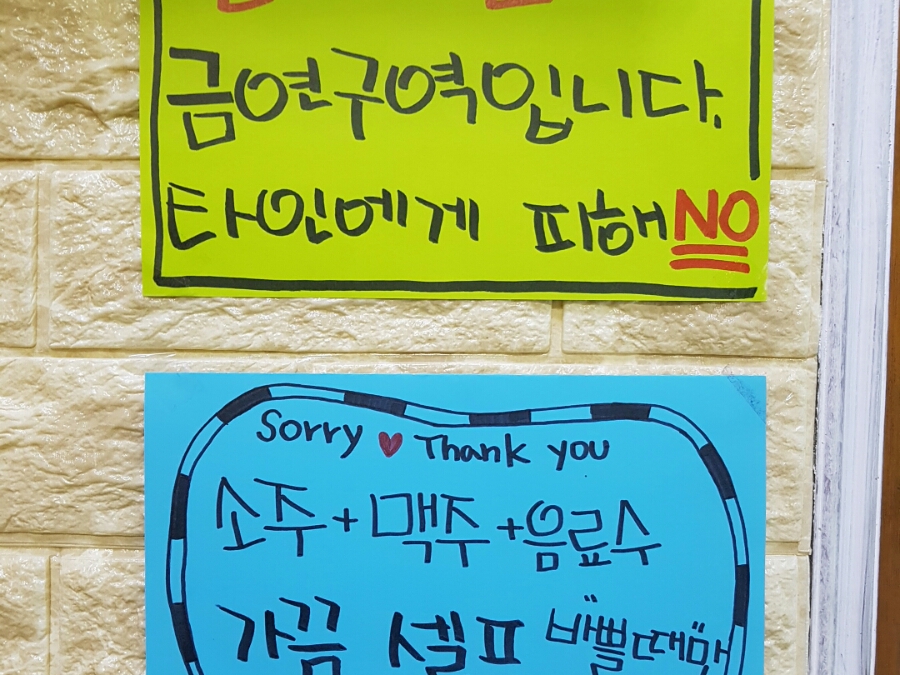 금연구역입니다.
타인에게 피해NO
Sorry ♥ Thank you
소주+맥주+음료수
가끔 셀프 바쁠때만